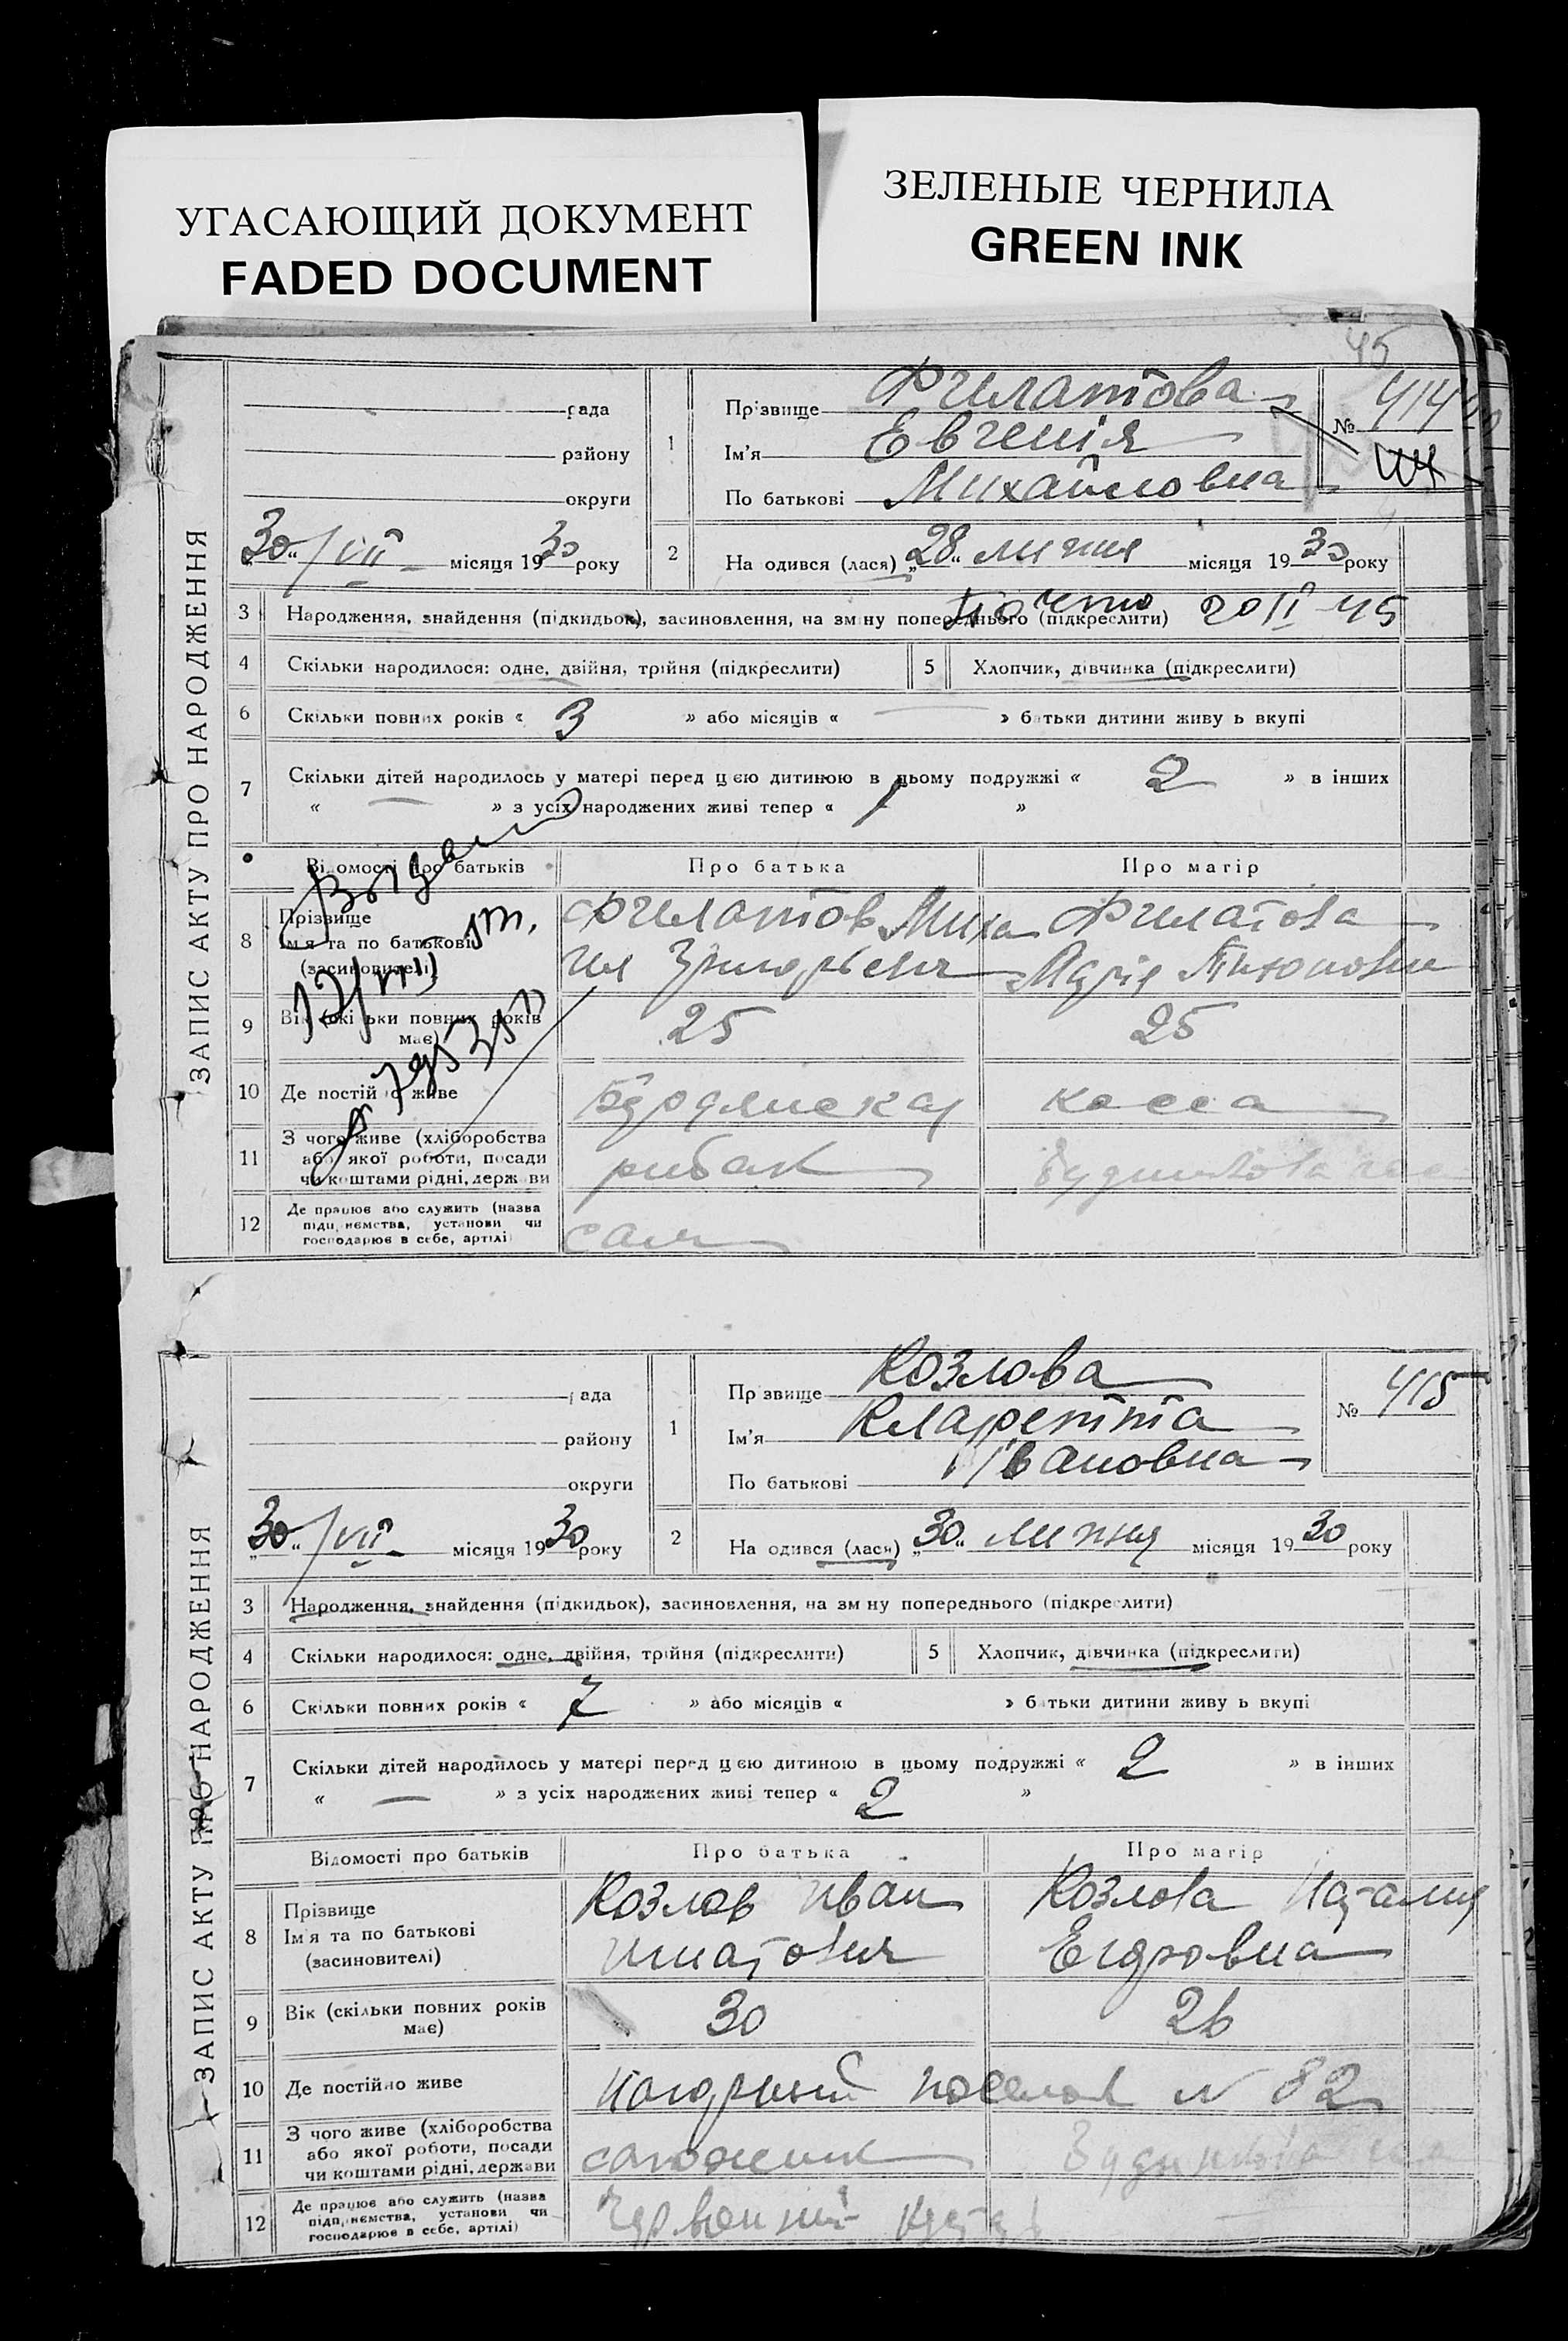 УГАСАЮЩИЙ ДОКУМЕНТ
FADED DOCUMENT
ЗЕЛЕНЫЕ ЧЕРНИЛА
GREEN INK
45
ЗАПИС АКТУ ПРО НАРОДЖЕННЯ
рада
району
округи
„30“ /VII місяця 1930 року
1
Прізвище Филатова
Ім'я Евгенія
По батькові Михайловна
№ 414
2
На одився (лася) „28“ липня місяця 1930 року
3 Народження, знайдення (підкидьок), засиновлення, на зміну попереднього (підкреслити)
20 II 45
4 Скільки народилося: одне, двійня, трійня (підкреслити)
5 Хлопчик, дівчинка (підкреслити)
6 Скільки повних років « 3 » або місяців « — » батьки дитини живу ь вкупі
7 Скільки дітей народилось у матері перед цією дитиною в цьому подружжі « 2 » в інших
« — » з усіх народжених живі тепер « 1 »
Відомості про батьків
Про батька
Про матір
8 Прізвище
Ім'я та по батькові
(засиновителі)
Филатов Миха
Филатова
Марія
9 Вік (скільки повних років має)
25
25
10 Де постійно живе
коса
11 З чого живе (хліборобства
або якої роботи, посади
чи коштами рідні, держави
рибак
12 Де працює або служить (назва
підприємства, установи чи
господарює в себе, артілі)
сам
ЗАПИС АКТУ ПРО НАРОДЖЕННЯ
рада
району
округи
„30“ /VII місяця 1930 року
1
Пр звище Козлова
Ім'я Кларетта
По батькові Івановна
№ 415
2
На одився (лася) „30“ липня місяця 1930 року
3 Народження, знайдення (підкидьок), засиновлення, на зм ну попереднього (підкреслити)
4 Скільки народилося: одне, двійня, трійня (підкреслити)
5 Хлопчик, дівчинка (підкреслити)
6 Скільки повних років « 7 » або місяців « » батьки дитини живу ь вкупі
7 Скільки дітей народилось у матері перед цією дитиною в цьому подружжі « 2 » в інших
« — » з усіх народжених живі тепер « 2 »
Відомості про батьків
Про батька
Про матір
8 Прізвище
Ім'я та по батькові
(засиновителі)
Козлов Иван
Игнатович
Козлова Наталия
Егоровна
9 Вік (скільки повних років має)
30
26
10 Де постійно живе
Нагорный поселок N 82
11 З чого живе (хліборобства
або якої роботи, посади
чи коштами рідні, держави
сапожник
12 Де працює або служить (назва
підприємства, установи чи
господарює в себе, артілі)
Червоний